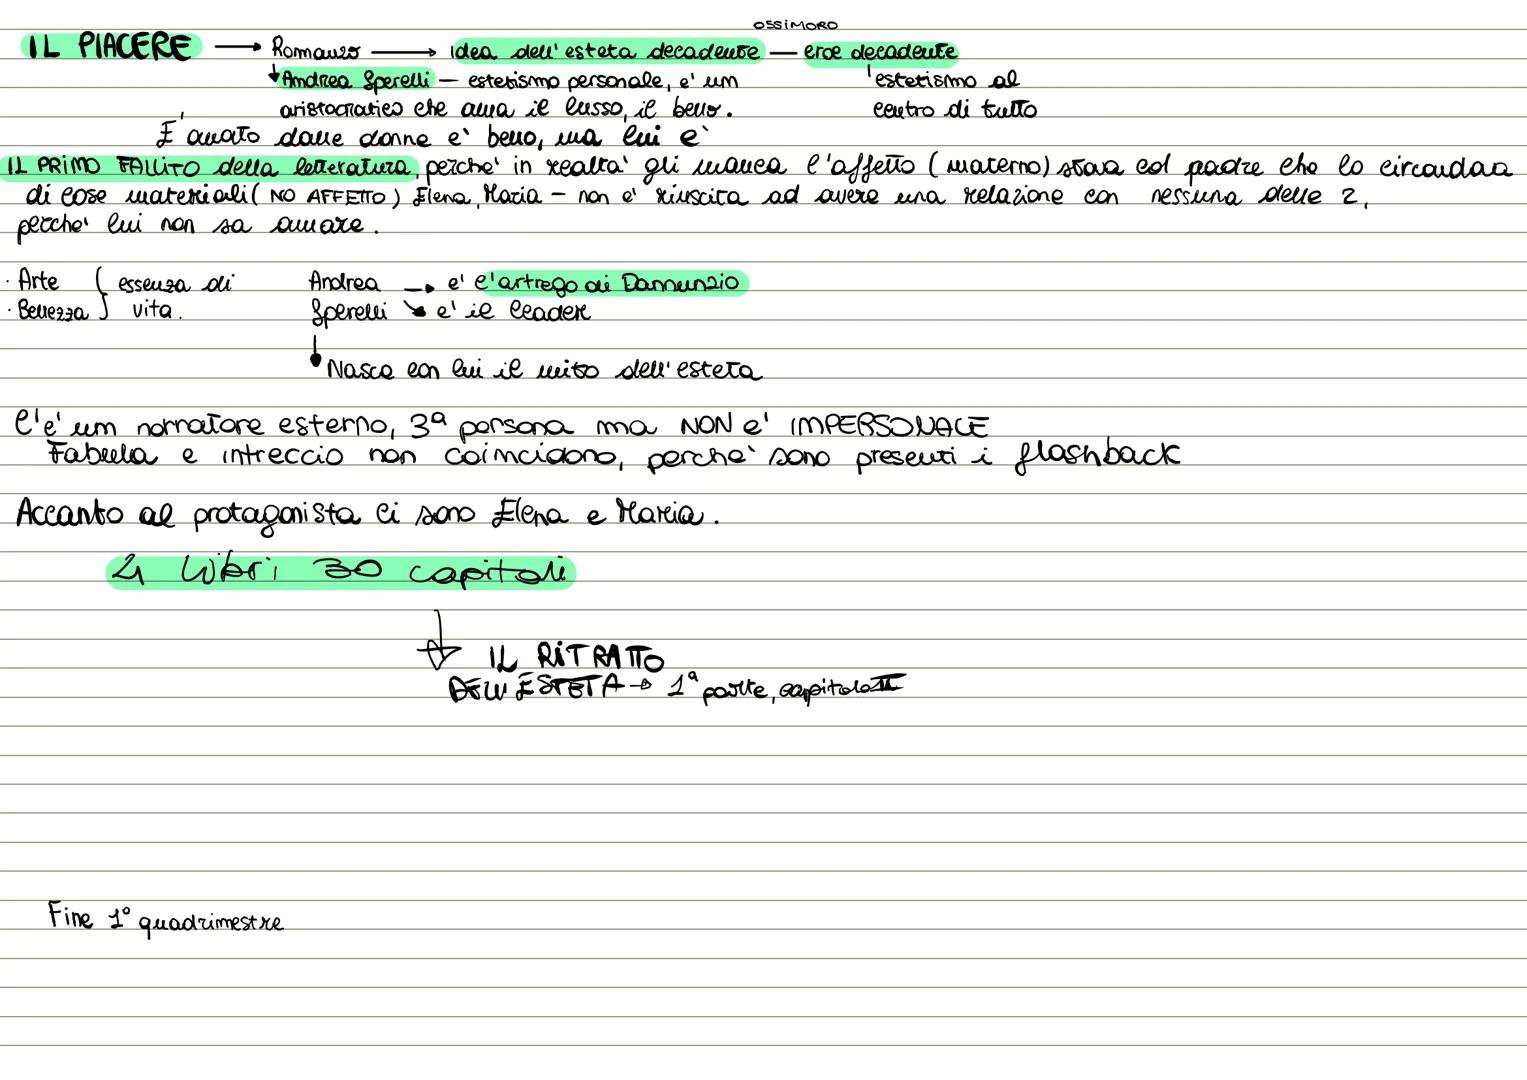 OSSIMORO
IL PIACERE → Romanzo → idea dell'esteta decadente — eroe decadente
Andrea Sperelli — estetismo personale, e' un estetismo al
aristocratico che ama il lusso, il bello. centro di tutto
E' amato dalle donne e' bello, ma lui e'
IL PRIMO FALLITO della letteratura, perche' in realta' gli manca l'affetto (materno) stava col padre che lo circondava
di cose materiali (NO AFFETTO) Elena, Maria – non e' riuscita ad avere una relazione con nessuna delle 2,
perche' lui non sa amare.
· Arte { essenza di Andrea → e' l'artrego di Dannunzio
· Bellezza } vita. Sperelli → e' il leader
Nasce con lui il mito dell'esteta
C'e' un narratore esterno, 3ª persona ma NON e' IMPERSONALE
Fabula e intreccio non coincidono, perche' sono presenti i flashback
Accanto al protagonista ci sono Elena e Maria.
4 libri 30 capitoli
IL RITRATTO
DELL'ESTETA → 1ª parte, capitolo II
Fine 1° quadrimestre